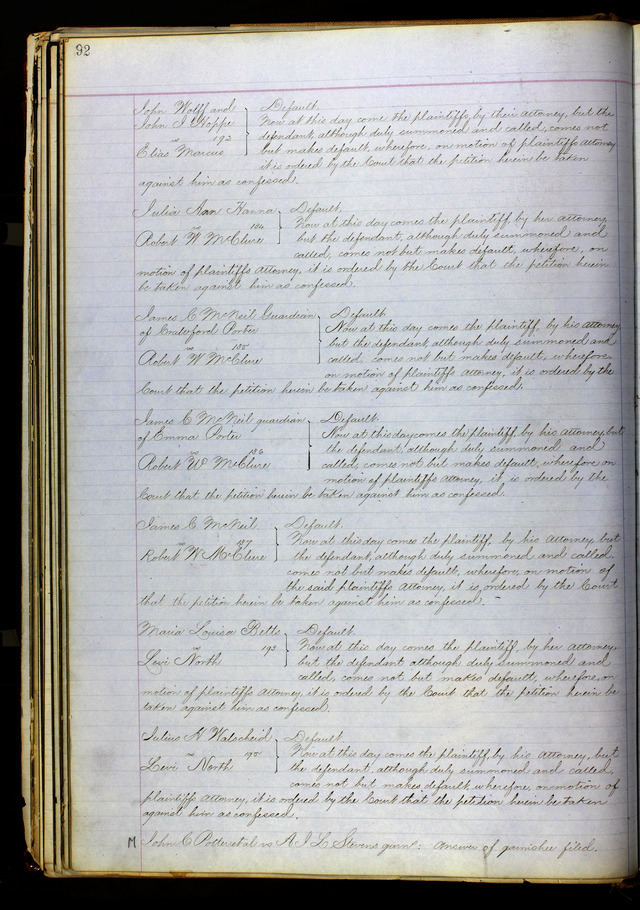 92
John Wolff and } Default.
John I Hoppe } Now at this day come the plaintiffs, by their attorney, but the
vs 192 } defendant, although duly summoned and called, comes not
Elias Marcus } but makes default, wherefore, on motion of plaintiffs attorney
it is ordered by the Court that the petition herein be taken
against him as confessed.
Julia Ann Hanna } Default.
vs 184 } Now at this day comes the plaintiff by her attorney,
Robert W McClure } but the defendant, although duly summoned and
called, comes not but makes default, wherefore, on
motion of plaintiffs attorney, it is ordered by the Court that the petition herein
be taken against him as confessed.
James C McNeil Guardian } Default.
of Crawford Porter } Now at this day comes the plaintiff, by his attorney
vs 185 } but the defendant, although duly summoned and
Robert W McClure } called comes not but makes default, wherefore
on motion of plaintiffs attorney, it is ordered by the
Court that the petition herein be taken against him as confessed.
James C McNeil guardian } Default.
of Emma Porter } Now at this day comes the plaintiff, by his attorney, but
vs 186 } the defendant, although duly summoned and
Robert W McClure } called, comes not but makes default, wherefore, on
motion of plaintiffs attorney, it is ordered by the
Court that the petition herein be taken against him as confessed.
James C McNeil } Default.
vs 187 } Now at this day comes the plaintiff, by his attorney, but
Robert W McClure } the defendant, although duly summoned and called
comes not but makes default, wherefore, on motion of
the said plaintiffs attorney, it is ordered by the Court
that the petition herein be taken against him as confessed. -
Maria Louisa Betts } Default.
vs 193 } Now at this day comes the plaintiff, by her attorney,
Levi North } but the defendant although duly summoned and
called, comes not but makes default, wherefore, on
motion of plaintiffs attorney, it is ordered by the Court that the petition herein be
taken against him as confessed.
Julius H Walscheid } Default
vs 195 } Now at this day comes the plaintiff, by his attorney, but
Levi North } the defendant, although duly summoned and called,
comes not but makes default, wherefore, on motion of
plaintiff attorney, it is ordered by the Court that the petition herein be taken
against him as confessed.
M John C Potter et al vs A I L Stevens garn : Answer of garnishee filed.